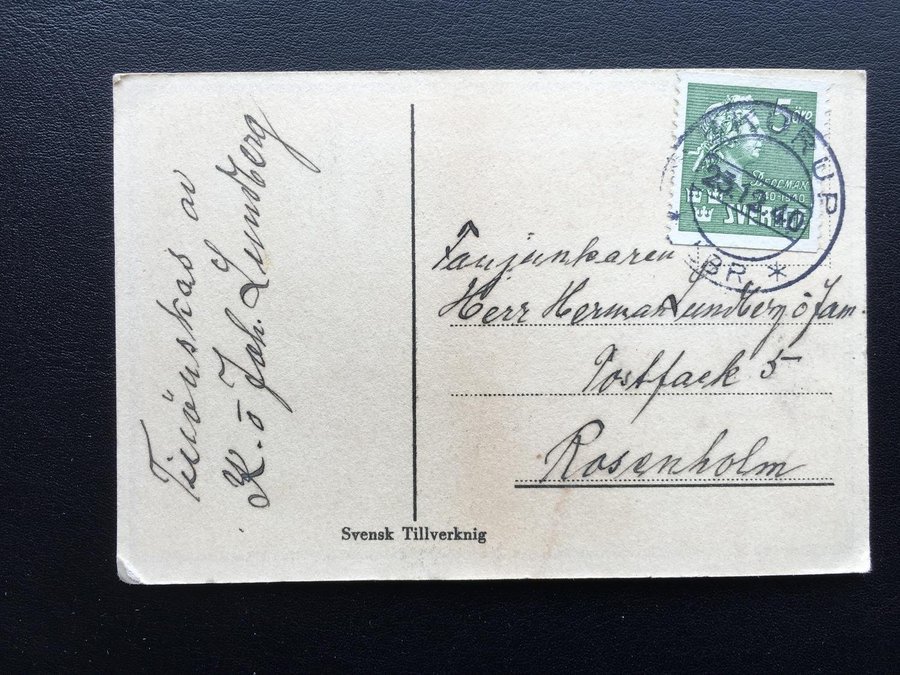 Tillönskas av
K. o Joh. Lundberg
Svensk Tillverknig
5 ÖRE
BELLMAN
1740-1940
SVERIGE
SKURUP
23.12.40
BR *
Fanjunkaren
Herr Herman Lundberg o fam.
Postfack 5
Rosenholm